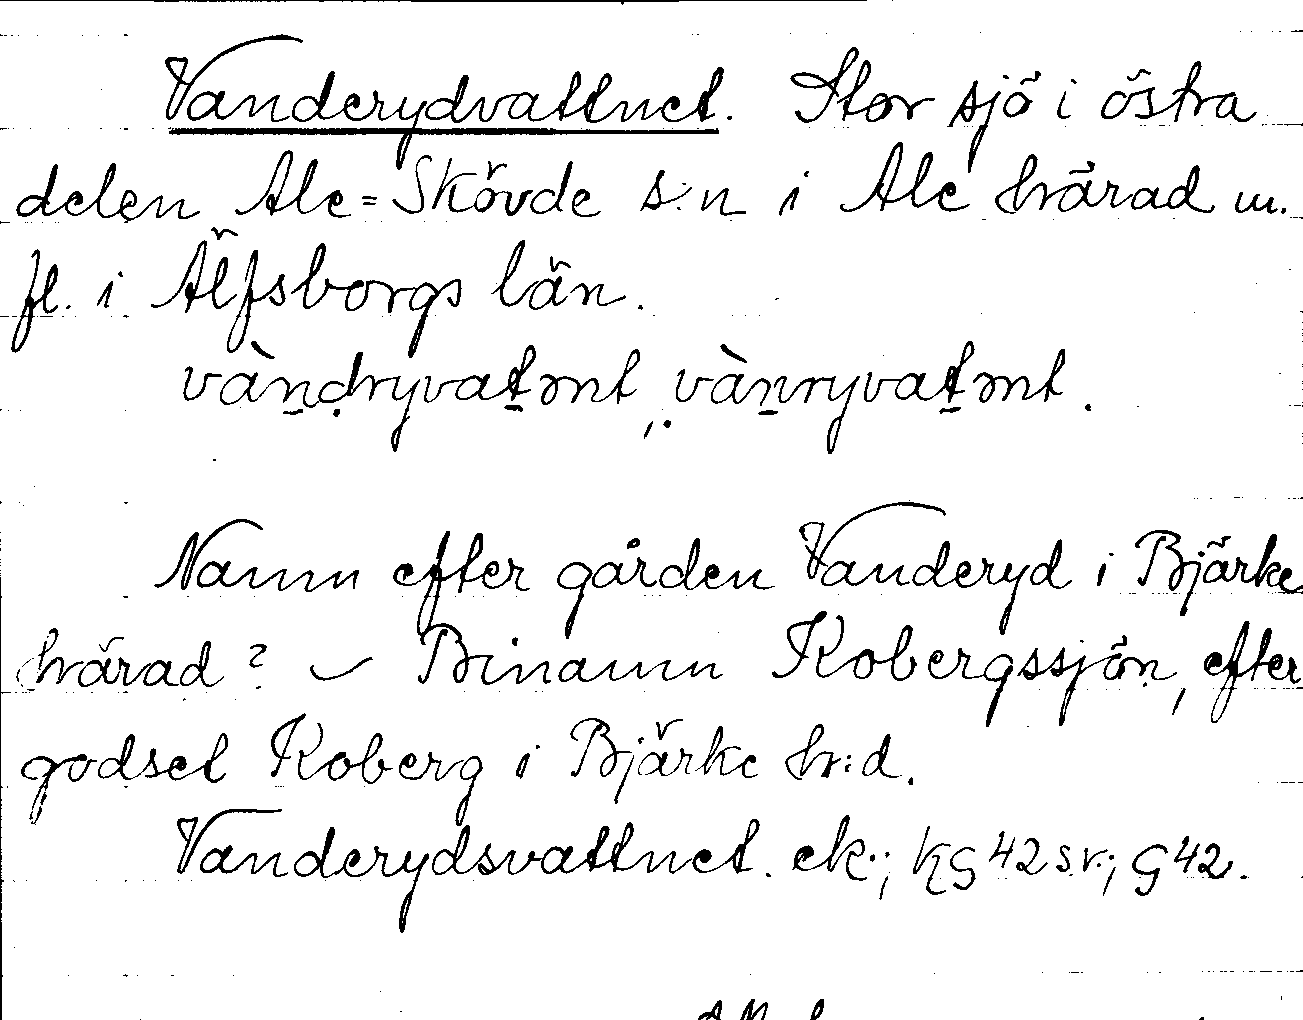 Vanderydvattnet. Stor sjö i östra
delen Ale=Skövde s:n i Ale härad m.
fl. i Älfsborgs län.
vàndryvatənt, vànryvatənt.
Namn efter gården Vanderyd i Bjärke
härad? – Binamn Kobergssjön, efter
godset Koberg i Bjärke hr:d.
Vanderydsvattnet. ek.; KG 42 sv.; G 42.